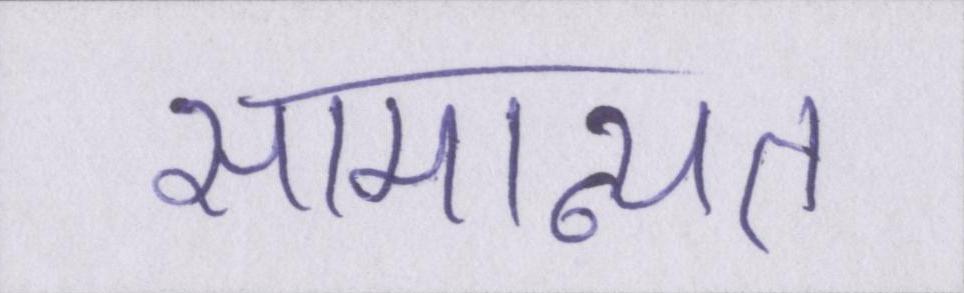 सामान्यत